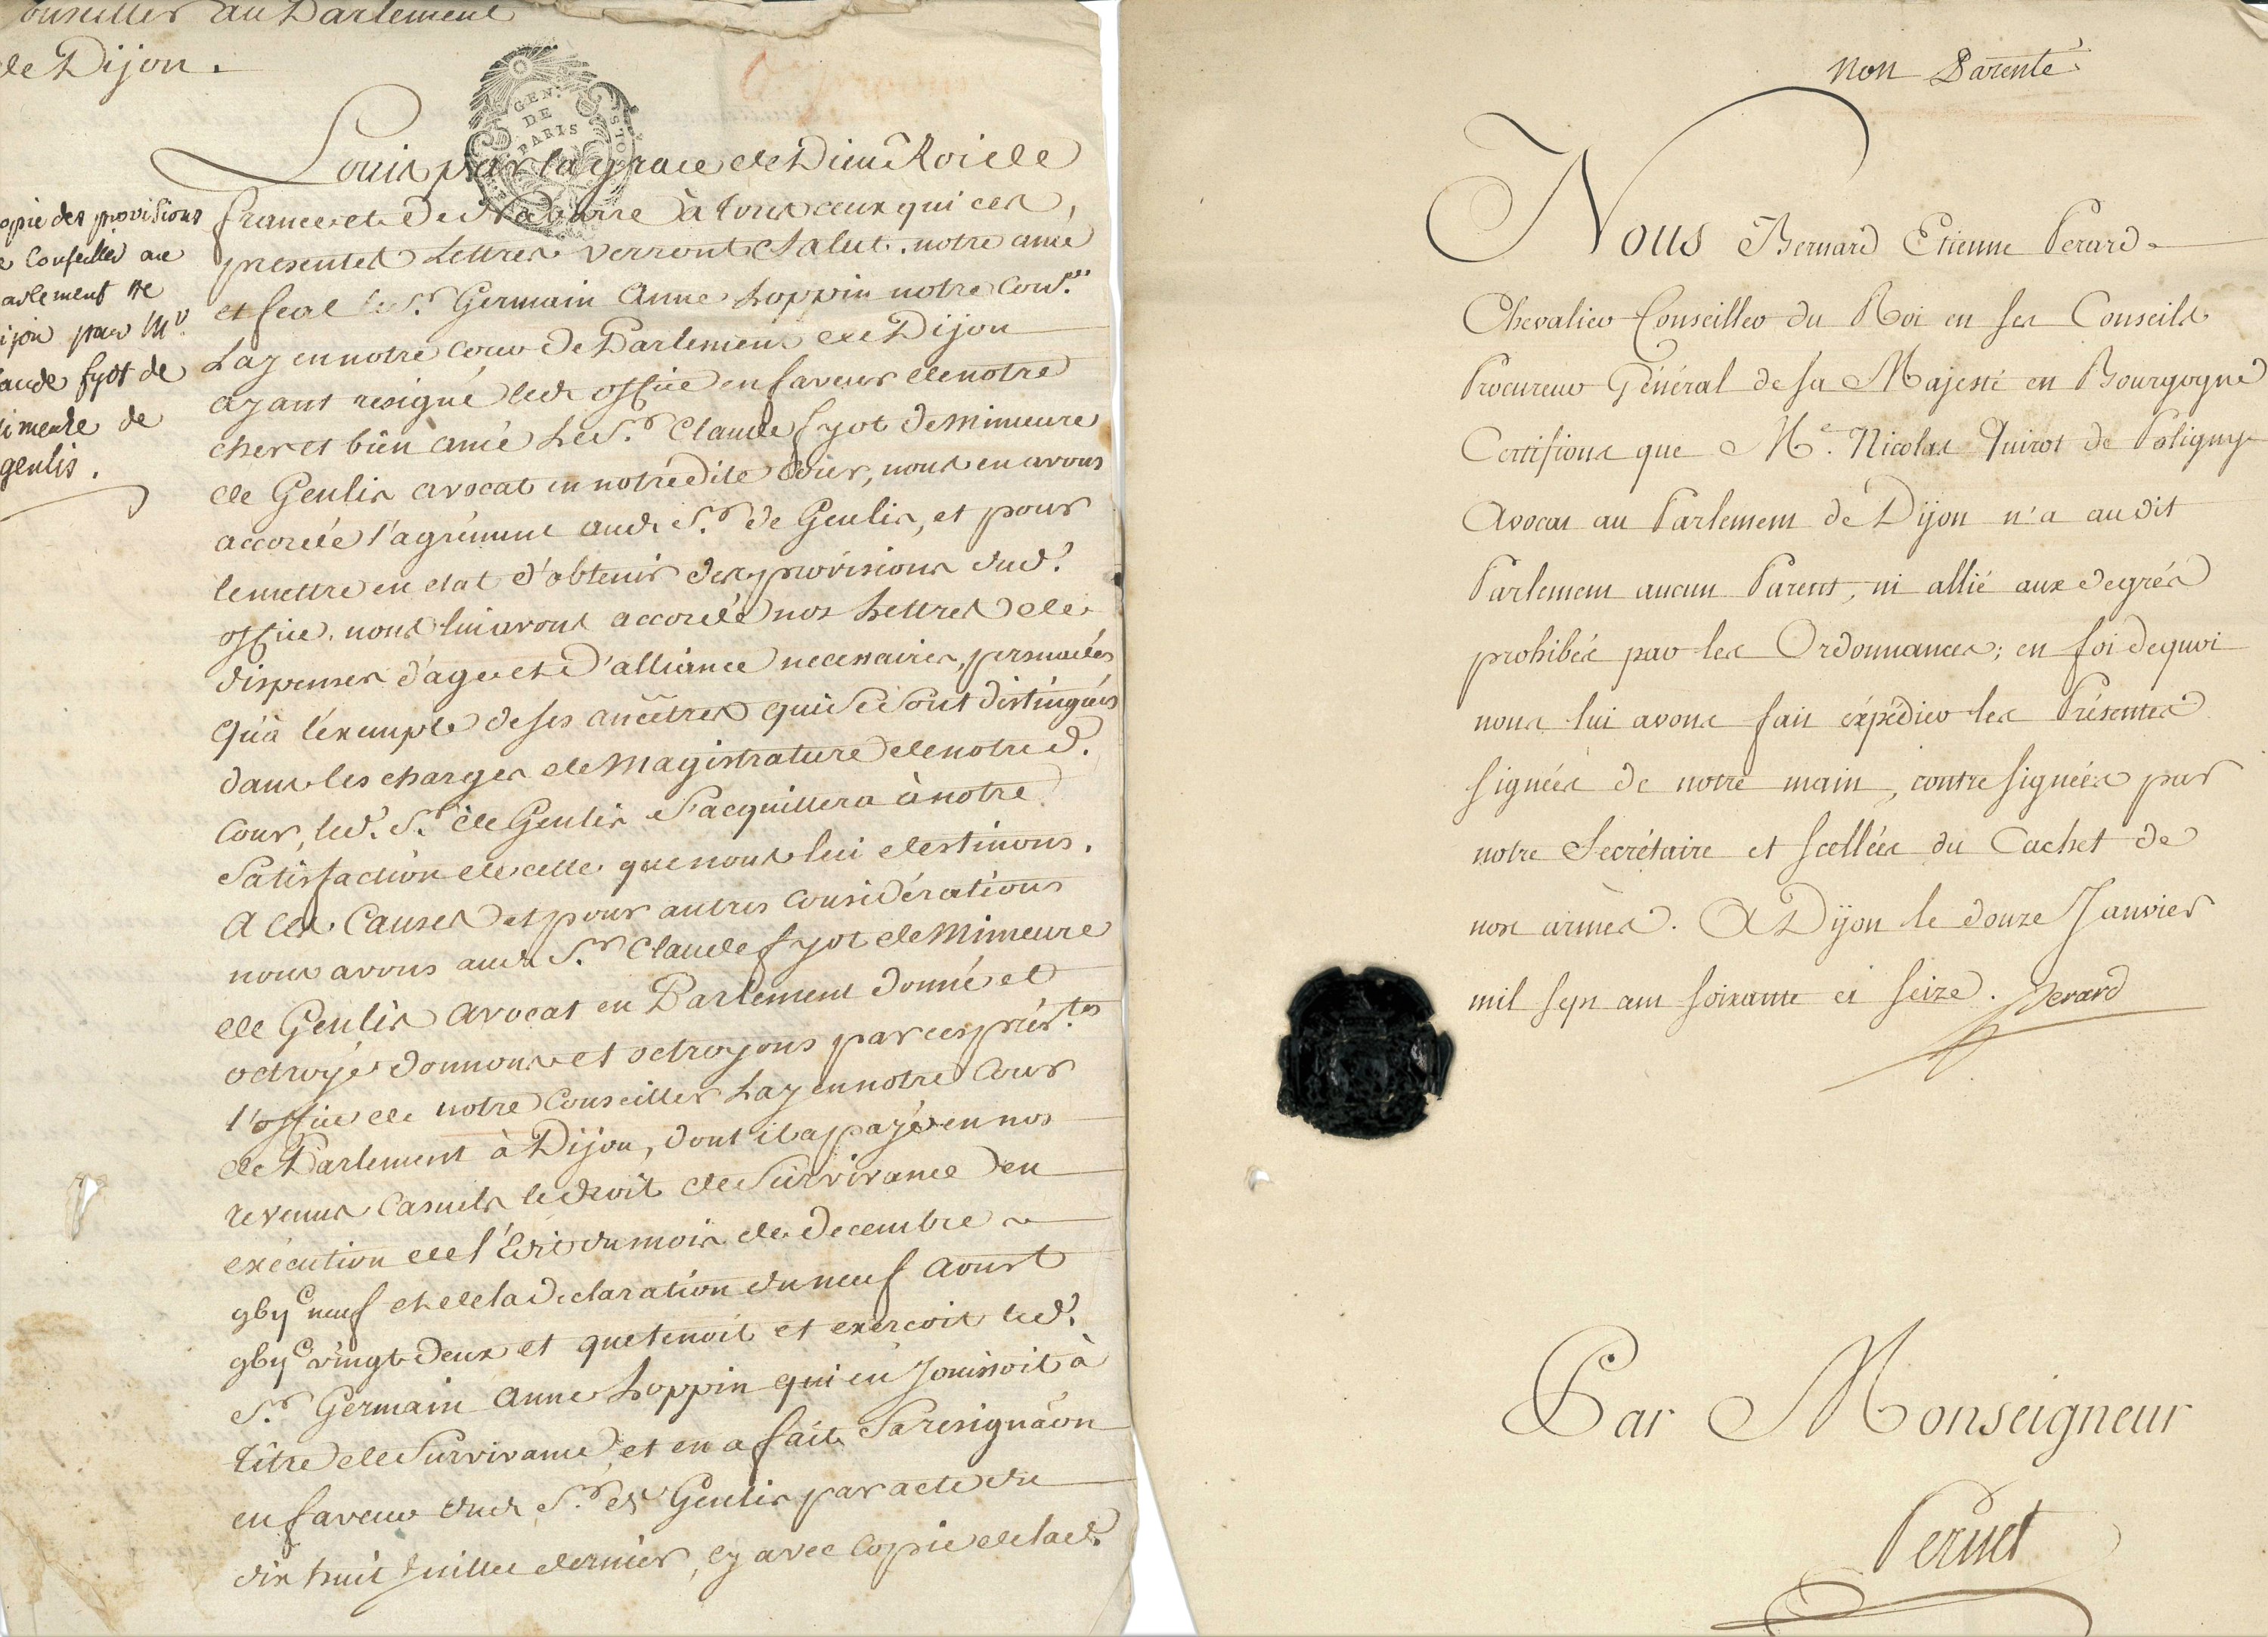 onseiller au Parlement
de Dijon.
GEN. DE PARIS
Louis par la grace de Dieu Roi de
france et de Navarre à tous ceux qui ces,
presentes Lettres verront Salut. notre amé
et feal le S.r Germain Anne Loppin notre Con.er
Lay en notre Cour de Parlement de Dijon
ayant resigné led. office en faveur de notre
cher et bien amé Le S.r Claude fyot de Mimeure
de Genlis avocat en notredite Cour, nous en avons
accordé l'agrément aud. S.r de Genlis, et pour
le mettre en etat d'obtenir des provisions dud.
office. nous lui avons accordé nos Lettres de
dispenses d'age et d'alliance necessaires, persuadés
qu'à l'éxemple de ses ancêtres qui se sont distingués
dans les charges de Magistrature de notred.
Cour, led. S.r de Genlis S'acquittera à notre
Satisfaction de celle que nous lui destinons.
A ces Causes et pour autres considérations
nous avons aud. S.r Claude fyot de Mimeure
de Genlis avocat en Parlement donné et
octroyé donnons et octroyons par ces prés.tes
l'office de notre Conseiller Lay en notre Cour
de Parlement à Dijon, dont il a payé en nos
revenus Casuels le droit de Survivance en
exécution de l'Edit du mois de Decembre
gbijc neuf et de la Declaration du neuf Aoust
gbijc vingt deux et que tenoit et exerçoit led.
S.r Germain Anne Loppin qui en Jouissoit à
titre de Survivance, et en a fait Sa resignâon
en faveur dud. S.r de Genlis par acte du
dix huit Juillet dernier, cy avec Copie de lad.
opie des provisions
e Conseiller au
arlement de
ijon pour Mr
aude fyot de
imeure de
genlis.
Non Parenté.
Nous Bernard Etienne Perard
Chevalier Conseiller du Roi en ses Conseils
Procureur Général de sa Majesté en Bourgogne
Certifions que Me. Nicolas Quirot de Poligny
Avocat au Parlement de Dijon n'a audit
Parlement aucun Parent, ni allié aux degrés
prohibés par les Ordonnances; en foi dequoi
nous lui avons fait éxpédier les Présentes
signées de notre main, contresignées par
notre Secrétaire et scellées du Cachet de
nos armes. A Dijon le douze Janvier
mil sept cent soixante et seize. Perard
Par Monseigneur
Peruet